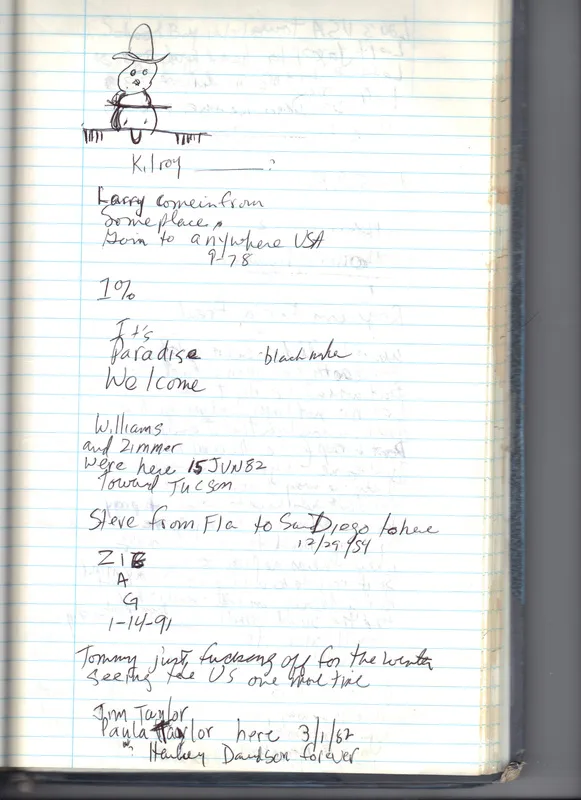 Kilroy ______ ?
Larry comein from
Someplace,
Goin to anywhere USA
9-78
1%
It's
Paradise
Welcome
Williams
and Zimmer
were here 15 JUN 82
Toward Tucson
Steve from Fla to San Diego to here
ZIG
A
G
1-14-91
Tommy just fucking off for the winter
seeing the US one more time
Jim Taylor
Paula Taylor here 3/1/82
Harley Davidson forever